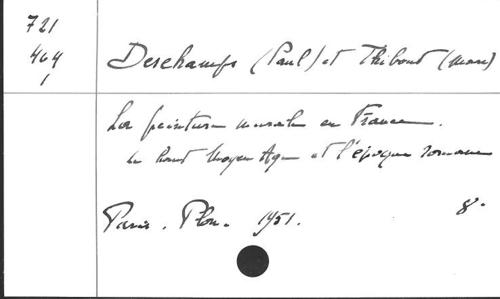 721
464
1
Deschamps (Paul) et Thibout (Marc)
La peinture murale en France.
Le haut Moyen Age et l'époque romane
Paris. Plon. 1951. 8°